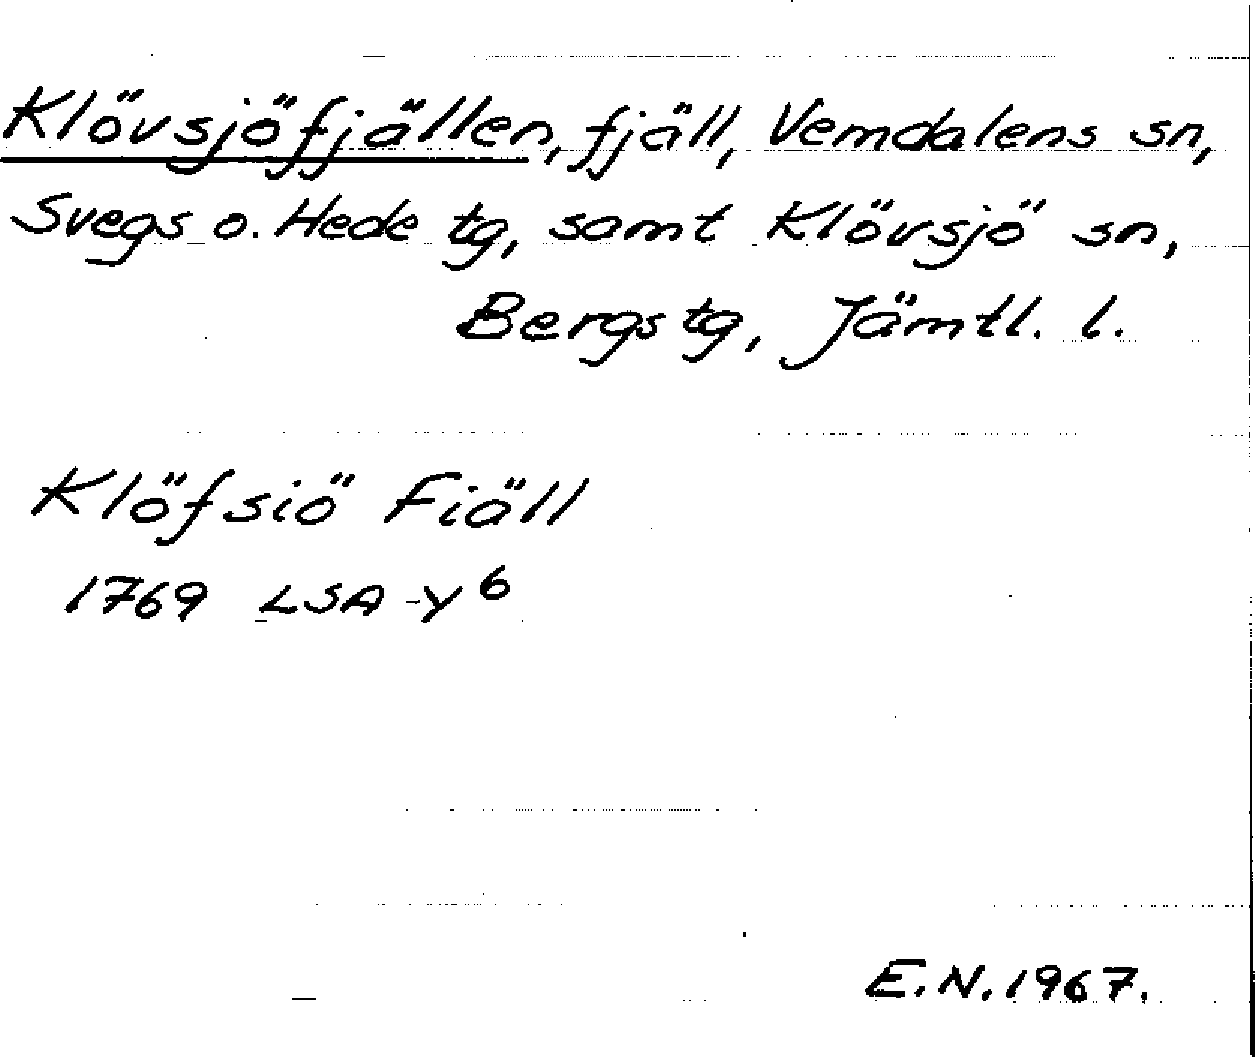 Klövsjöfjällen, fjäll, Vemdalens sn,
Svegs o. Hede tg, samt Klövsjö sn,
Bergs tg, Jämtl. l.
Klöfsiö Fiäll
1769 LSA -Y⁶
E.N. 1967.